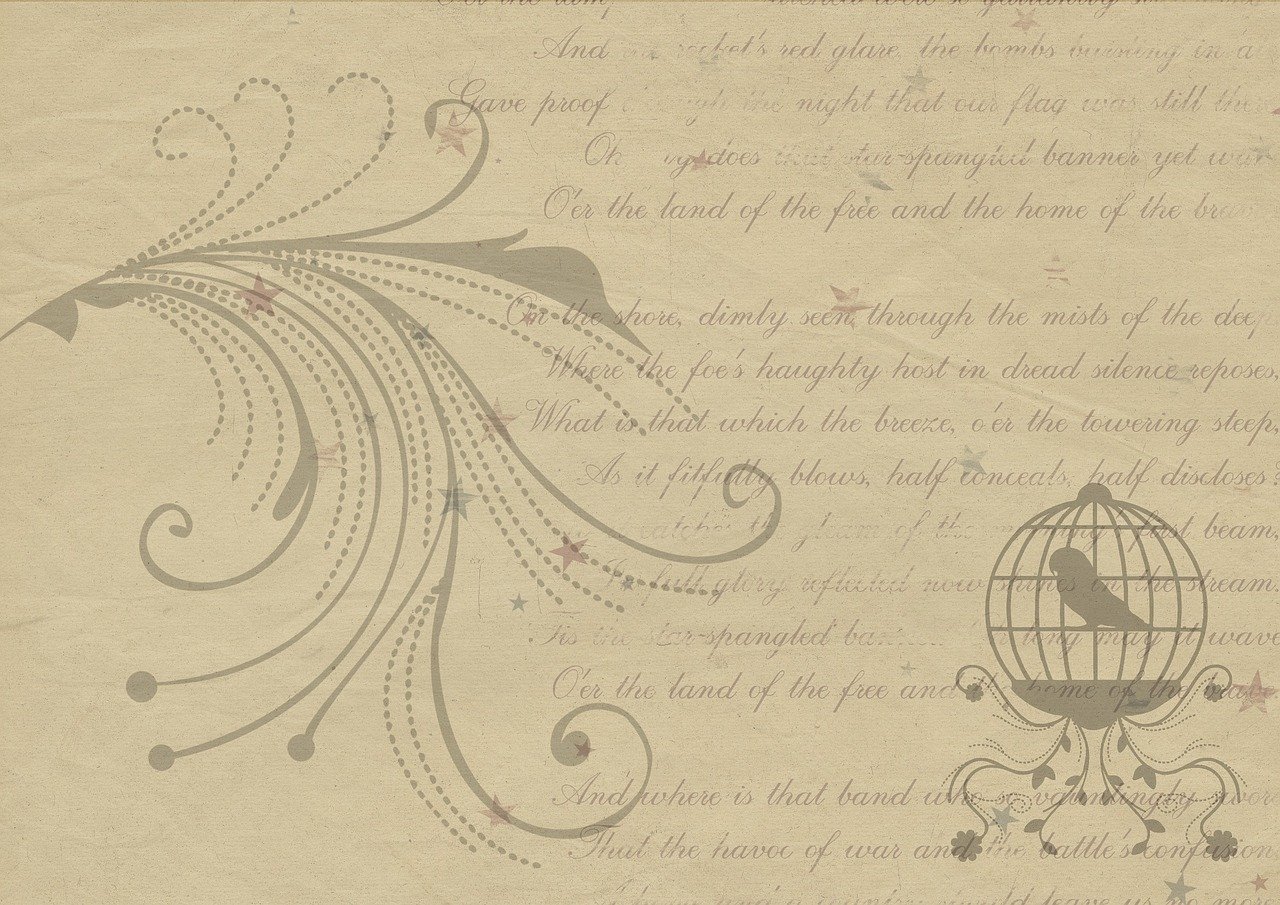 O'er the ram
watched were so gallantly
And the rocket's red glare, the bombs bursting in a
Gave proof through the night that our flag was still the
Oh say does that star-spangled banner yet wa
O'er the land of the free and the home of the brave
On the shore, dimly seen, through the mists of the deep
Where the foe's haughty host in dread silence reposes,
What is that which the breeze, o'er the towering steep,
As it fitfully blows, half conceals, half discloses?
catches the gleam of the morning's first beam,
In full glory reflected now shines in the stream
'Tis the star-spangled banner long may it wave
O'er the land of the free and the home of the brave
And where is that band who so vauntingly swor
That the havoc of war and the battle's confusion
A home and a country should leave us no more